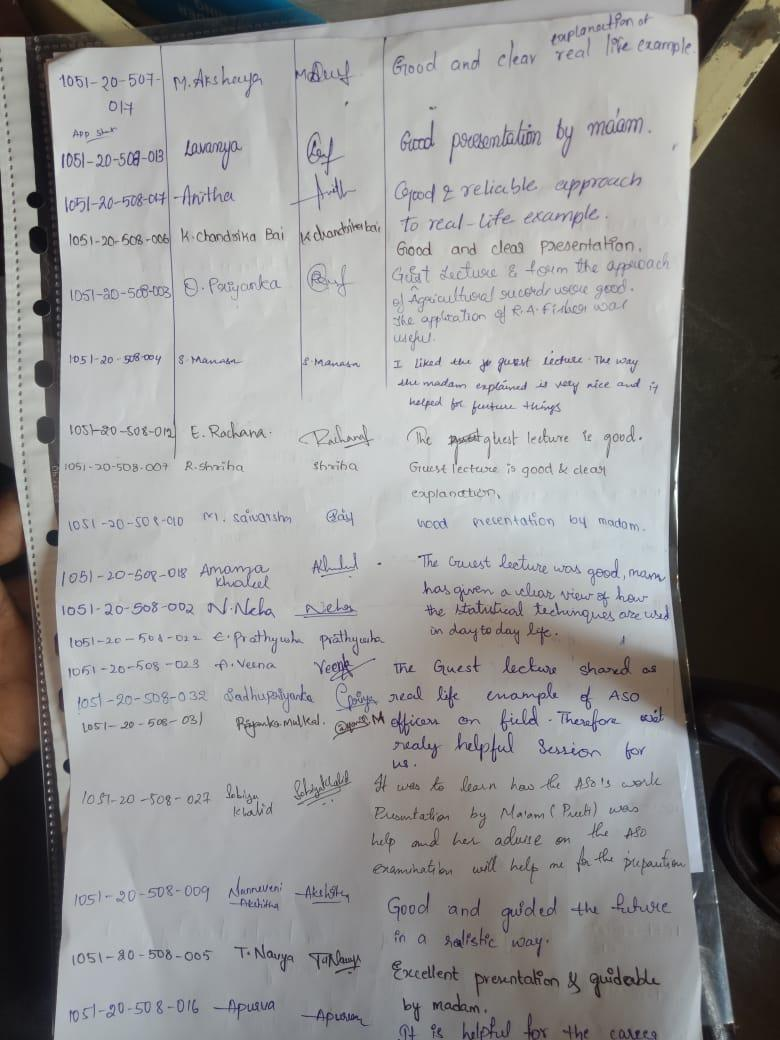 explanation of
1051-20-507- M. Akshaya Good and clear real life example.
017
App Stat
1051-20-508-013 Lavanya Good presentation by ma'am.
1051-20-508-017 Anitha Anith Good & reliable approach
to real-life example.
1051-20-508-006 K. Chandrika Bai K chandrika bai Good and clear Presentation.
1051-20-508-003 D. Priyanka Guest Lecture & form the approach
of Agricultural records were good.
The application of R.A. Fisher was
useful.
1051-20-508-004 S. Manasa S. Manasa I liked the guest lecture. The way
the madam explained is very nice and it
helped for furture things
1051-20-508-012 E. Rachana. Rachana The guest lecture is good.
1051-20-508-007 R. Shriha Shriha Guest lecture is good & clear
explanation,
1051-20-508-010 M. Saivarsha Good presentation by madam.
1051-20-508-018 Amanza The Guest lecture was good, mam
Khaleel has given a clear view of how
1051-20-508-002 N. Neha Neha the statistical techniques are used
in day to day life.
1051-20-508-022 E. Prathyusha prathyusha
1051-20-508-023 A. Veena Veena The Guest lecture shared as
1051-20-508-032 Sadhupriyanka Spriya real life example of ASO
1051-20-508-031 Priyanka Mulkal. officers on field. Therefore
realy helpful Session for
us.
1051-20-508-027 Sobiya Sobiya Khalid It was to learn how the ASO's work
Khalid Presentation by Ma'am (Preeti) was
help and her advise on the ASO
examination will help me for the prepaution
1051-20-508-009 Nanneveni Akshitha Good and guided the future
Akshitha in a realistic way.
1051-20-508-005 T. Navya T. Navya Excellent presentation & guidable
by madam.
1051-20-508-016 Apurva Apurva It is helpful for the career